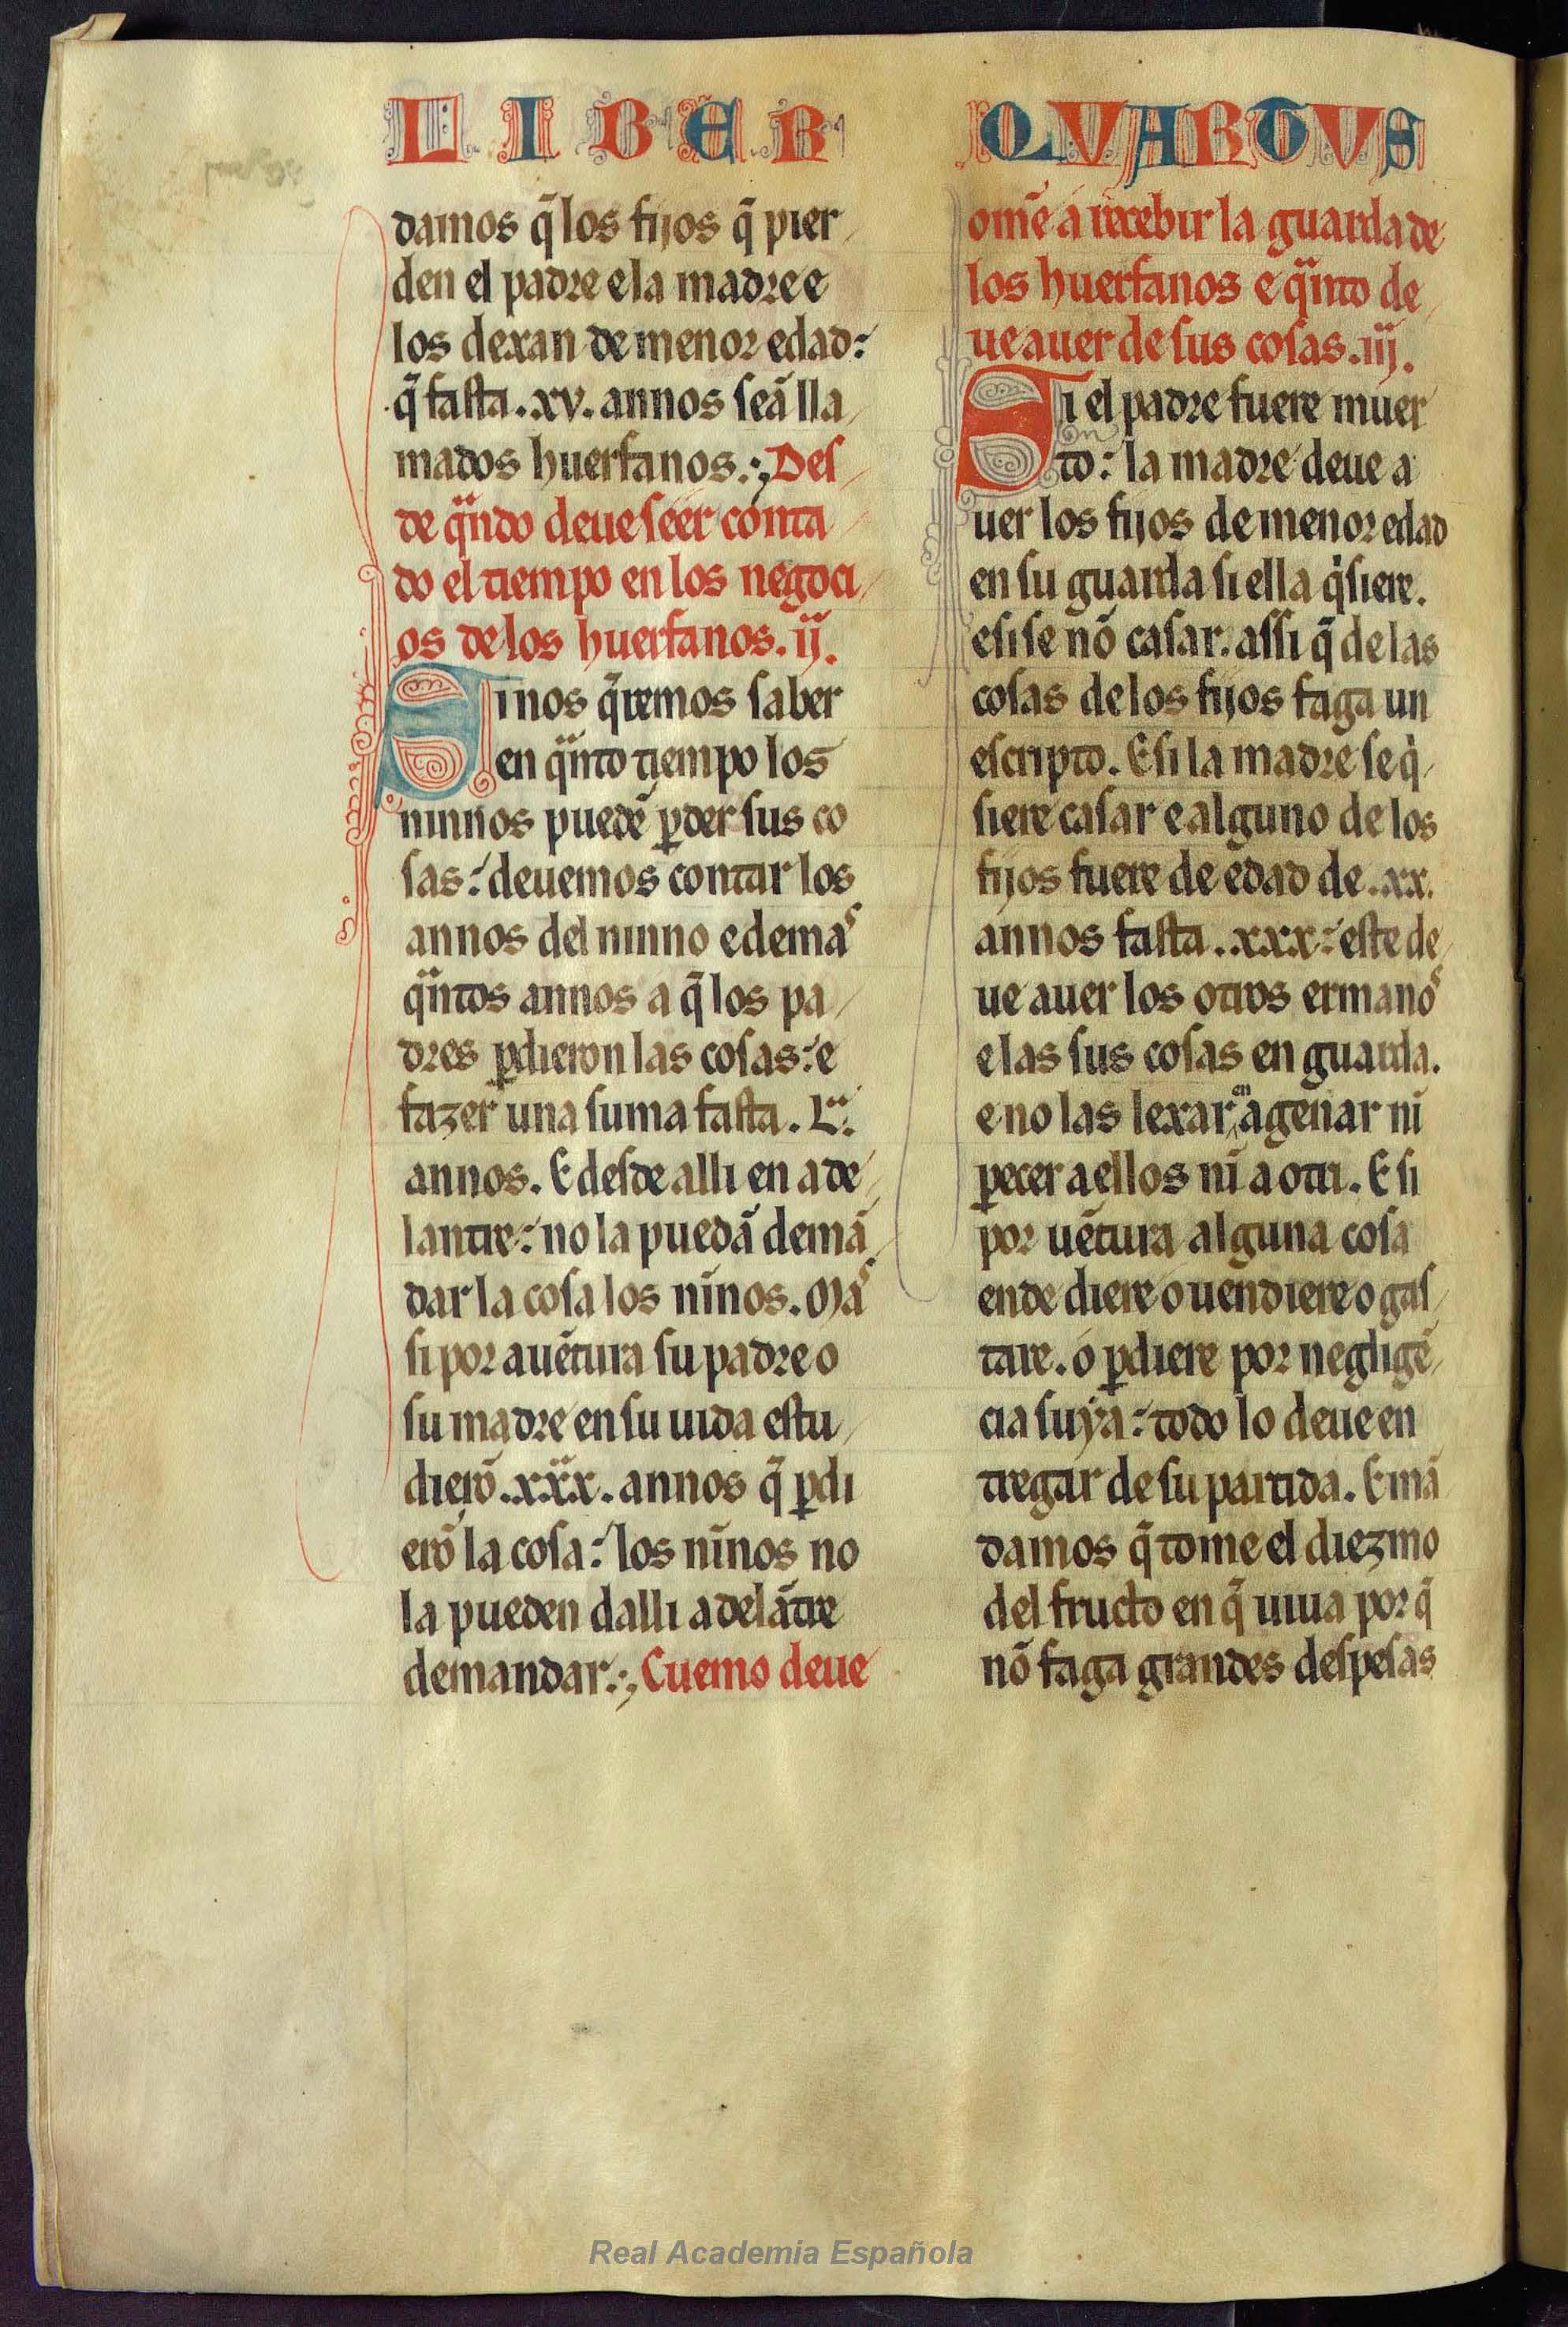 LIBER QVARTVS
damos q̃ los fijos q̃ pier
den el padre e la madre e
los dexan de menor edad:
q̃ fasta .xv. annos seã lla
mados huerfanos. Des
de qͣndo deue seer conta
do el tiempo en los negoci
os de los huerfanos. ij.
Si nos q̃remos saber
en qͣnto tiempo los
ninnos puedẽ ꝑder sus co
sas: deuemos contar los
annos del ninno e demas
qͣntos annos a q̃ los pa
dres ꝑdieron las cosas: e
fazer una suma fasta .L.
annos. E desde alli en ade
lantre: no la puedã demã
dar la cosa los nĩnos. Mas
si por auẽtura su padre o
su madre en su uida estu
dierõ .xxx. annos q̃ ꝑdi
erõ la cosa: los nĩnos no
la pueden dalli adelãtre
demandar. Cuemo deue
omẽ a recebir la guarda de
los huerfanos e qͣnto de
ue auer de sus cosas. iij.
Si el padre fuere muer
to: la madre deue a
uer los fijos de menor edad
en su guarda si ella qͥsiere.
e si se nõ casar. assi q̃ de las
cosas de los fijos faga un
escripto. E si la madre se qͥ
siere casar e alguno de los
fijos fuere de edad de .xx.
annos fasta .xxx: este de
ue auer los otros ermanos
e las sus cosas en guarda.
e no las lexar en agenar nĩ
ꝑecer a ellos nĩ a otri. E si
por uẽtura alguna cosa
ende diere o uendiere o gas
tare. o ꝑdiere por negligẽ
cia suya: todo lo deue en
tregar de su partida. E mã
damos q̃ tome el diezmo
del fructo en q̃ uiua por q̃
nõ faga grandes despesas
Real Academia Española